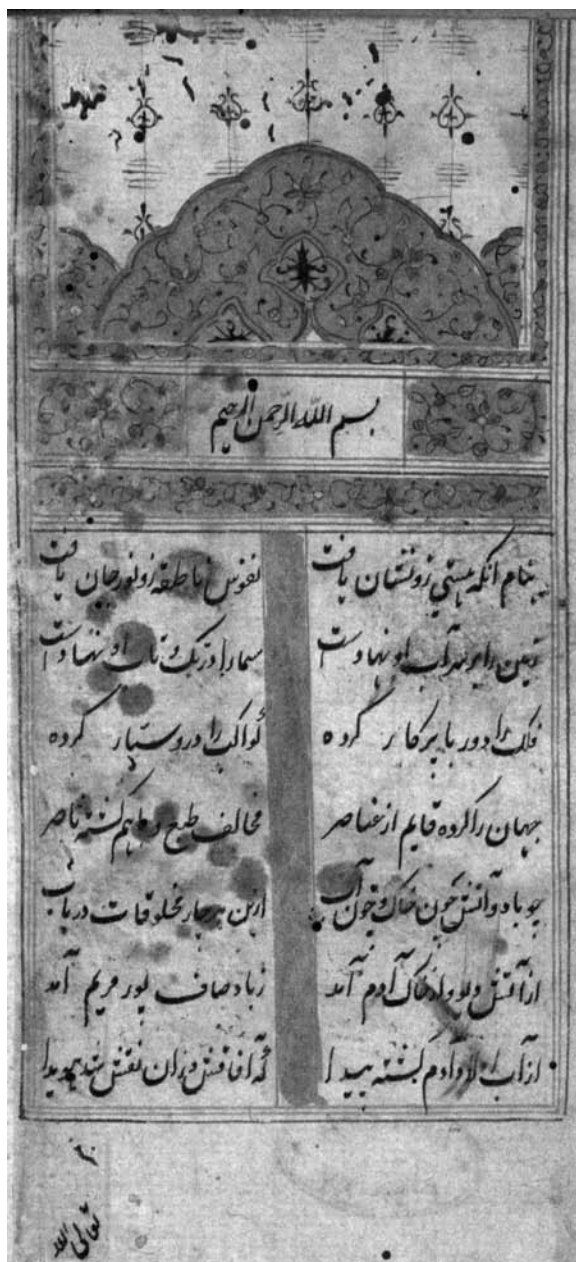 بسم الله الرحمن الرحیم
بنام انکه هستی زو نشان یافت نفوس ناطقه زو نور جان یافت
زمین را بر سر آب او نهادست سما را در تک و تاب او نهادست
فلک را دور با پرکار کرده کواکب را درو سیار کرده
جهان را کرده قایم از عناصر مخالف طبع و باهم کشته ناصر
چو باد و آتش چون خاک و چون آب ازین هر چار مخلوقات دریاب
از آتش دیو و از خاک آدم آمد ز باد صاف پور مریم آمد
از آب اولاد آدم کشته پیدا که نقش شد
تعالی الله